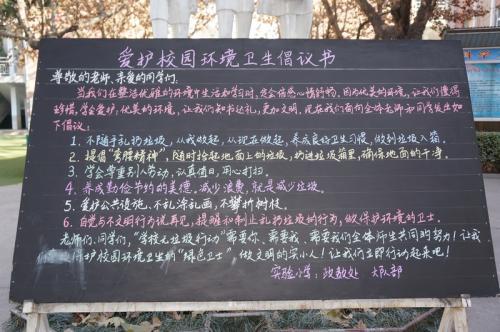 爱护校园环境卫生倡议书
尊敬的老师、亲爱的同学们:
当我们在整洁优雅的环境中生活和学习时,定会信感心情舒畅。因为优美的环境,让我们懂得
珍惜,学会爱护,优美的环境,让我们知书达礼,更加文明,现在我们面向全体老师和同学发出如
下倡议:
1、不随手乱扔垃圾,从我做起,从现在做起,养成良好卫生习惯,做到垃圾入箱。
2、提倡“弯腰精神”,随时拾起地面上的垃圾,扔进垃圾箱里,确保地面的干净。
3、学会尊重别人劳动,认真值日,用心打扫。
4、养成勤俭节约的美德,减少浪费,就是减少垃圾。
5、爱护公共设施、不乱涂乱画,不攀折树枝。
6、自觉与不文明行为说再见,提醒和制止乱扔垃圾的行为,做保护环境的卫士。
老师们、同学们,“学校无垃圾行动”需要你、需要我、需要我们全体师生共同的努力!让我
保护校园环境卫生的“绿色卫士”,做文明的实小人!让我们立即行动起来吧!
实验小学:政教处 大队部